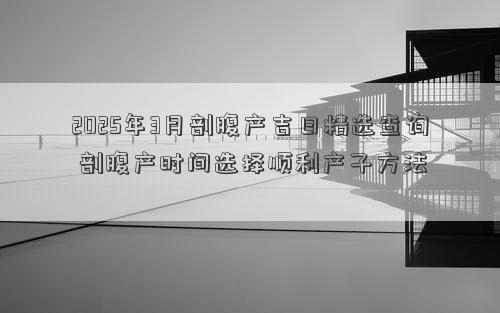 2025年3月剖腹产吉日精选查询
剖腹产时间选择顺利产子方法